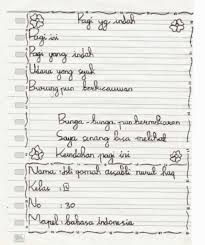 Pagi yg indah
Pagi ini
Pagi yang indah
Udara yang sejuk
Burung pun berkicauan
Bunga-bunga pun bermekaran
Saya senang bisa melihat
Keindahan pagi ini
Nama : Isti qomah assabti nurul haq
Kelas :
No : 30
Mapel : bahasa indonesia